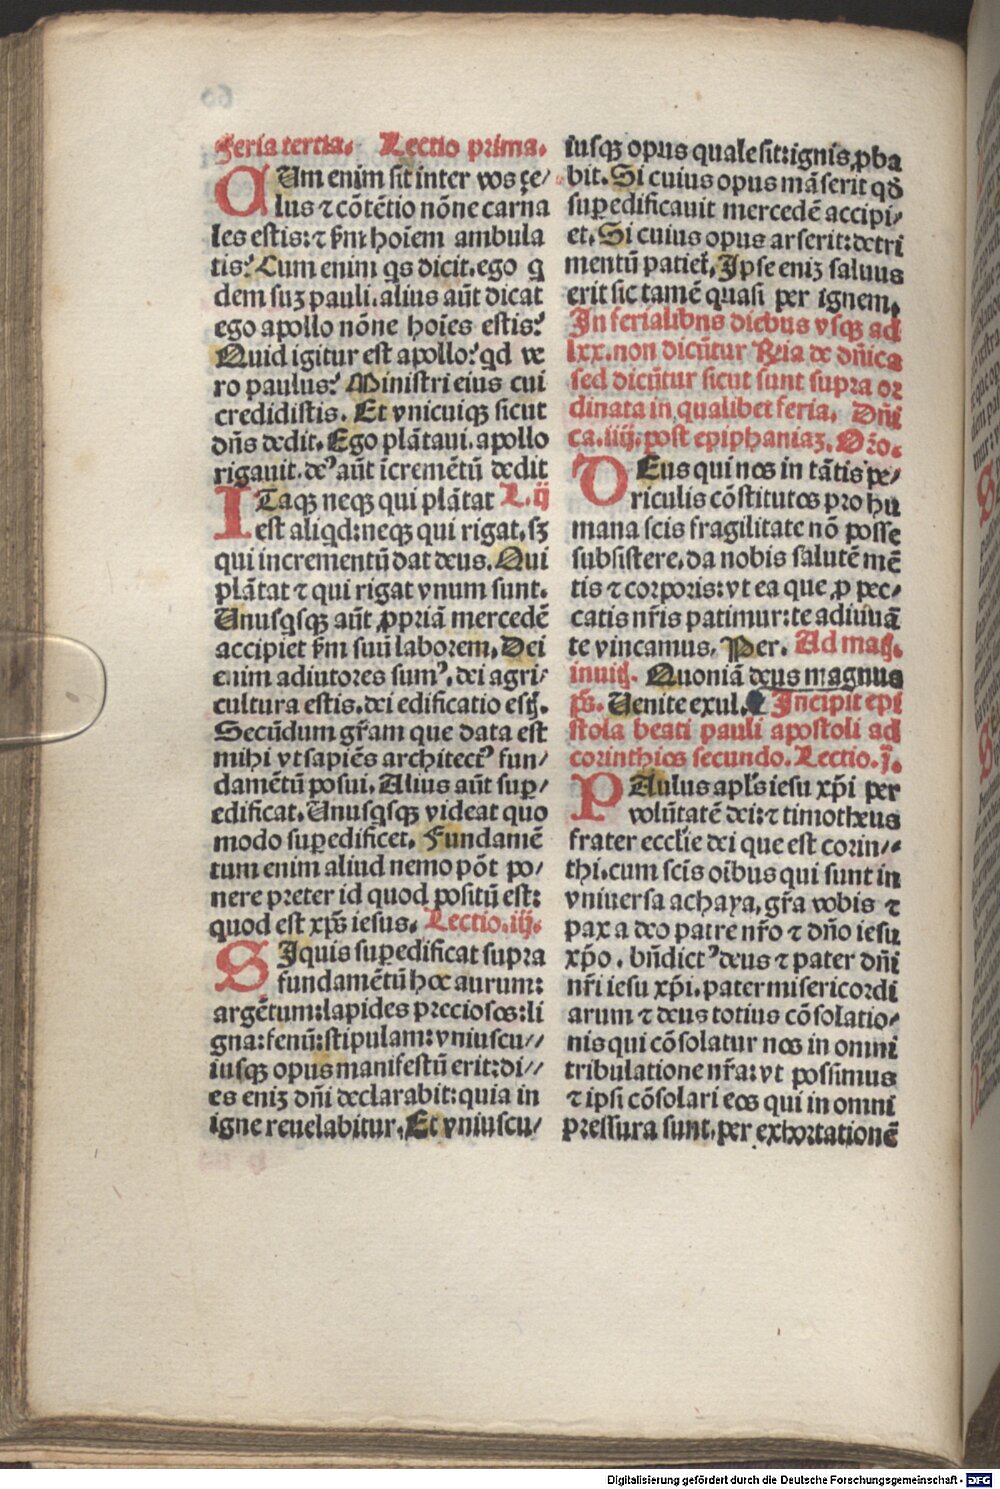 Feria tertia. Lectio prima.
CUm enim sit inter vos ze/
lus ⁊ cõtẽtio nõne carna
les estis: ⁊ ẜm hoĩem ambula
tis? Cum enim qͥs dicit. ego q
dem suꝫ pauli. alius aũt dicat
ego apollo nõne hoĩes estis?
Quid igitur est apollo? qd ve
ro paulus? Ministri eius cui
credidistis. Et vnicuiqꝫ sicut
dñs dedit. Ego plãtaui. apollo
rigauit. deꝰ aũt ĩcremẽtũ dedit
ITaqꝫ neqꝫ qui plãtat L. ij
est aliqd: neqꝫ qui rigat. sꝫ
qui incrementũ dat deus. Qui
plãtat ⁊ qui rigat vnum sunt.
Unusqͥsqꝫ aũt ꝓpriã mercedẽ
accipiet ẜm suũ laborem. Dei
enim adiutores sumꝰ. dei agri/
cultura estis. dei edificatio estꝭ.
Secũdum gr̃am que data est
mihi vt sapiẽs architectꝰ fun/
damẽtũ posui. Alius aũt suꝑ/
edificat. Unusqͥsqꝫ videat quo
modo suꝑedificet. Fundamẽ
tum enim aliud nemo põt po/
nere preter id quod positũ est:
quod est xp̃s iesus. Lectio. iij.
SIquis suꝑedificat supra
fundamẽtũ hoc aurum:
argẽtum: lapides preciosos: li
gna: fenũ: stipulam: vniuscu//
iusqꝫ opus manifestũ erit: di//
es eniꝫ dñi declarabit: quia in
igne reuelabitur. Et vniuscu/
iusqꝫ opus quale sit: ignis ꝓba
bit. Si cuius opus mãserit qð
suꝑedificauit mercedẽ accipi/
et. Si cuius opus arserit: detri
mentũ patiet̃. Ipse eniꝫ saluus
erit sic tamẽ quasi per ignem.
In ferialibns diebus vsqꝫ ad
lxx. non dicũtur R̃ria de dñica
sed dicũtur sicut sunt supra or
dinata in qualibet feria. Dñi
ca. iiij. post epiphaniaꝫ. Or̃o.
DEus qui nos in tãtis pe/
riculis cõstitutos pro hu
mana scis fragilitate nõ posse
subsistere. da nobis salutẽ mẽ
tis ⁊ corporis: vt ea que ꝓ pec/
catis nr̃is patimur: te adiuuã
te vincamus. Per. Ad matꝭ.
inuitꝭ. Quoniã deus magnus
p̃s. Uenite exul. Incipit epi
stola beati pauli apostoli ad
corinthios secundo. Lectio. j.
PAulus apl̃s iesu xp̃i per
volũtatẽ dei: ⁊ timotheus
frater eccl̃ie dei que est corin//
thi. cum scĩs oĩbus qui sunt in
vniuersa achaya. gr̃a vobis ⁊
pax a deo patre nr̃o ⁊ dño iesu
xp̃o. bñdictꝰ deus ⁊ pater dñi
nr̃i iesu xp̃i. pater misericordi
arum ⁊ deus totius cõsolatio/
nis qui cõsolatur nos in omni
tribulatione nr̃a: vt possimus
⁊ ipsi cõsolari eos qui in omni
pressura sunt. per exhortationẽ
Digitalisierung gefördert durch die Deutsche Forschungsgemeinschaft - DFG